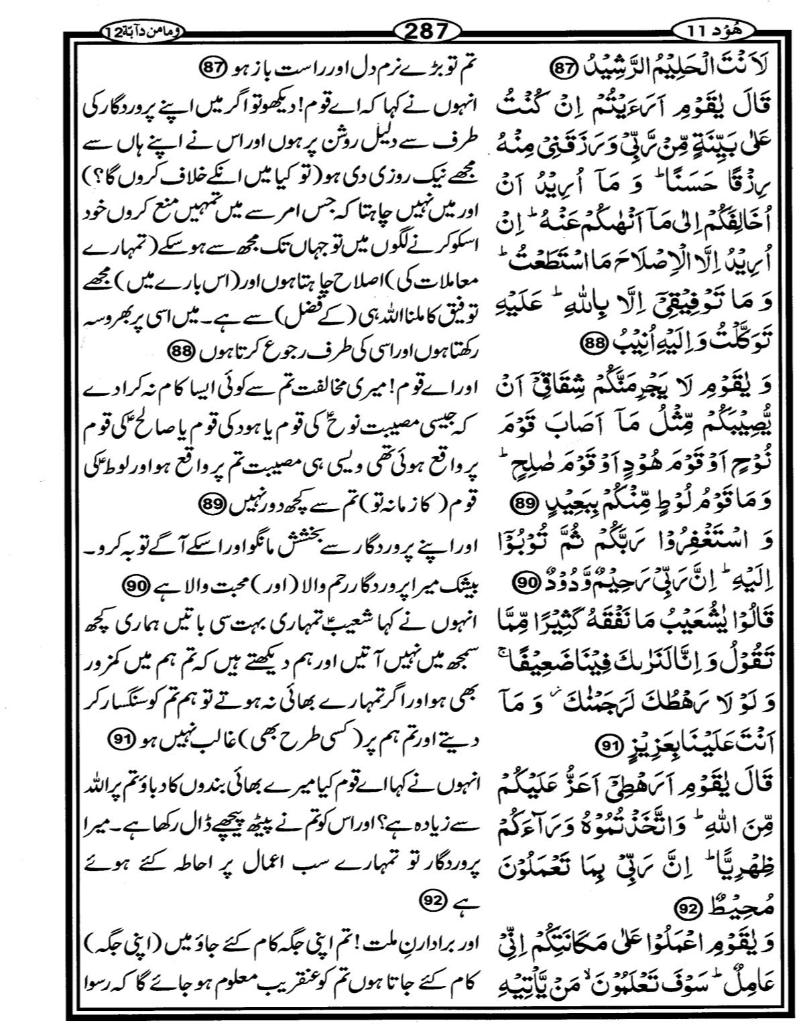 هُوْد 11
287
وما من دآبة 12
لَاَنْتَ الْحَلِيْمُ الرَّشِيْدُ ﴿87﴾
قَالَ يٰقَوْمِ اَرَءَيْتُمْ اِنْ كُنْتُ
عَلٰى بَيِّنَةٍ مِّنْ رَّبِّيْ وَ رَزَقَنِيْ مِنْهُ
رِزْقًا حَسَنًا ؕ وَ مَاۤ اُرِيْدُ اَنْ
اُخَالِفَكُمْ اِلٰى مَاۤ اَنْهٰىكُمْ عَنْهُ ؕ اِنْ
اُرِيْدُ اِلَّا الْاِصْلَاحَ مَا اسْتَطَعْتُ ؕ
وَ مَا تَوْفِيْقِيْۤ اِلَّا بِاللّٰهِ ؕ عَلَيْهِ
تَوَكَّلْتُ وَ اِلَيْهِ اُنِيْبُ ﴿88﴾
وَ يٰقَوْمِ لَا يَجْرِمَنَّكُمْ شِقَاقِيْۤ اَنْ
يُّصِيْبَكُمْ مِّثْلُ مَاۤ اَصَابَ قَوْمَ
نُوْحٍ اَوْ قَوْمَ هُوْدٍ اَوْ قَوْمَ صٰلِحٍ ؕ
وَ مَا قَوْمُ لُوْطٍ مِّنْكُمْ بِبَعِيْدٍ ﴿89﴾
وَ اسْتَغْفِرُوْا رَبَّكُمْ ثُمَّ تُوْبُوْۤا
اِلَيْهِ ؕ اِنَّ رَبِّيْ رَحِيْمٌ وَّدُوْدٌ ﴿90﴾
قَالُوْا يٰشُعَيْبُ مَا نَفْقَهُ كَثِيْرًا مِّمَّا
تَقُوْلُ وَ اِنَّا لَنَرٰىكَ فِيْنَا ضَعِيْفًا ۚ
وَ لَوْ لَا رَهْطُكَ لَرَجَمْنٰكَ ؗ وَ مَاۤ
اَنْتَ عَلَيْنَا بِعَزِيْزٍ ﴿91﴾
قَالَ يٰقَوْمِ اَرَهْطِيْۤ اَعَزُّ عَلَيْكُمْ
مِّنَ اللّٰهِ ؕ وَ اتَّخَذْتُمُوْهُ وَرَآءَكُمْ
ظِهْرِيًّا ؕ اِنَّ رَبِّيْ بِمَا تَعْمَلُوْنَ
مُحِيْطٌ ﴿92﴾
وَ يٰقَوْمِ اعْمَلُوْا عَلٰى مَكَانَتِكُمْ اِنِّيْ
عَامِلٌ ؕ سَوْفَ تَعْلَمُوْنَ ۙ مَنْ يَّاْتِيْهِ
تم تو بڑے نرم دل اور راست باز ہو ﴿87﴾
انہوں نے کہا کہ اے قوم! دیکھو تو اگر میں اپنے پروردگار کی
طرف سے دلیل روشن پر ہوں اور اس نے اپنے ہاں سے
مجھے نیک روزی دی ہو (تو کیا میں انکے خلاف کروں گا؟)
اور میں نہیں چاہتا کہ جس امر سے میں تمہیں منع کروں خود
اسکو کرنے لگوں میں تو جہاں تک مجھ سے ہو سکے (تمہارے
معاملات کی) اصلاح چاہتا ہوں اور (اس بارے میں) مجھے
توفیق کا ملنا اللہ ہی (کے فضل) سے ہے۔ میں اسی پر بھروسہ
رکھتا ہوں اور اسی کی طرف رجوع کرتا ہوں ﴿88﴾
اور اے قوم! میری مخالفت تم سے کوئی ایسا کام نہ کرا دے
کہ جیسی مصیبت نوحؑ کی قوم یا ہود کی قوم یا صالحؑ کی قوم
پر واقع ہوئی تھی ویسی ہی مصیبت تم پر واقع ہو اور لوطؑ کی
قوم (کا زمانہ تو) تم سے کچھ دور نہیں ﴿89﴾
اور اپنے پروردگار سے بخشش مانگو اور اسکے آگے توبہ کرو۔
بیشک میرا پروردگار رحم والا (اور) محبت والا ہے ﴿90﴾
انہوں نے کہا شعیبؑ تمہاری بہت سی باتیں ہماری کچھ
سمجھ میں نہیں آتیں اور ہم دیکھتے ہیں کہ تم ہم میں کمزور
بھی ہو اور اگر تمہارے بھائی نہ ہوتے تو ہم تم کو سنگسار کر
دیتے اور تم ہم پر (کسی طرح بھی) غالب نہیں ہو ﴿91﴾
انہوں نے کہا اے قوم کیا میرے بھائی بندوں کا دباؤ تم پر اللہ
سے زیادہ ہے؟ اور اس کو تم نے پیٹھ پیچھے ڈال رکھا ہے۔ میرا
پروردگار تو تمہارے سب اعمال پر احاطہ کئے ہوئے
ہے ﴿92﴾
اور برادارنِ ملت! تم اپنی جگہ کام کئے جاؤ میں (اپنی جگہ)
کام کئے جاتا ہوں تم کو عنقریب معلوم ہو جائے گا کہ رسوا